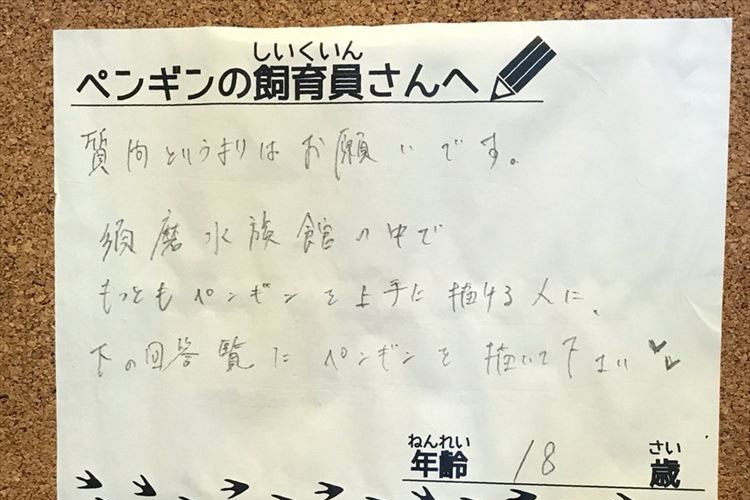 しいくいん
ペンギンの飼育員さんへ
質問というよりはお願いです。
須磨水族館の中で
もっともペンギンを上手に描ける人に、
下の回答覧にペンギンを描いて下さい
ねんれい さい
年齢 18 歳